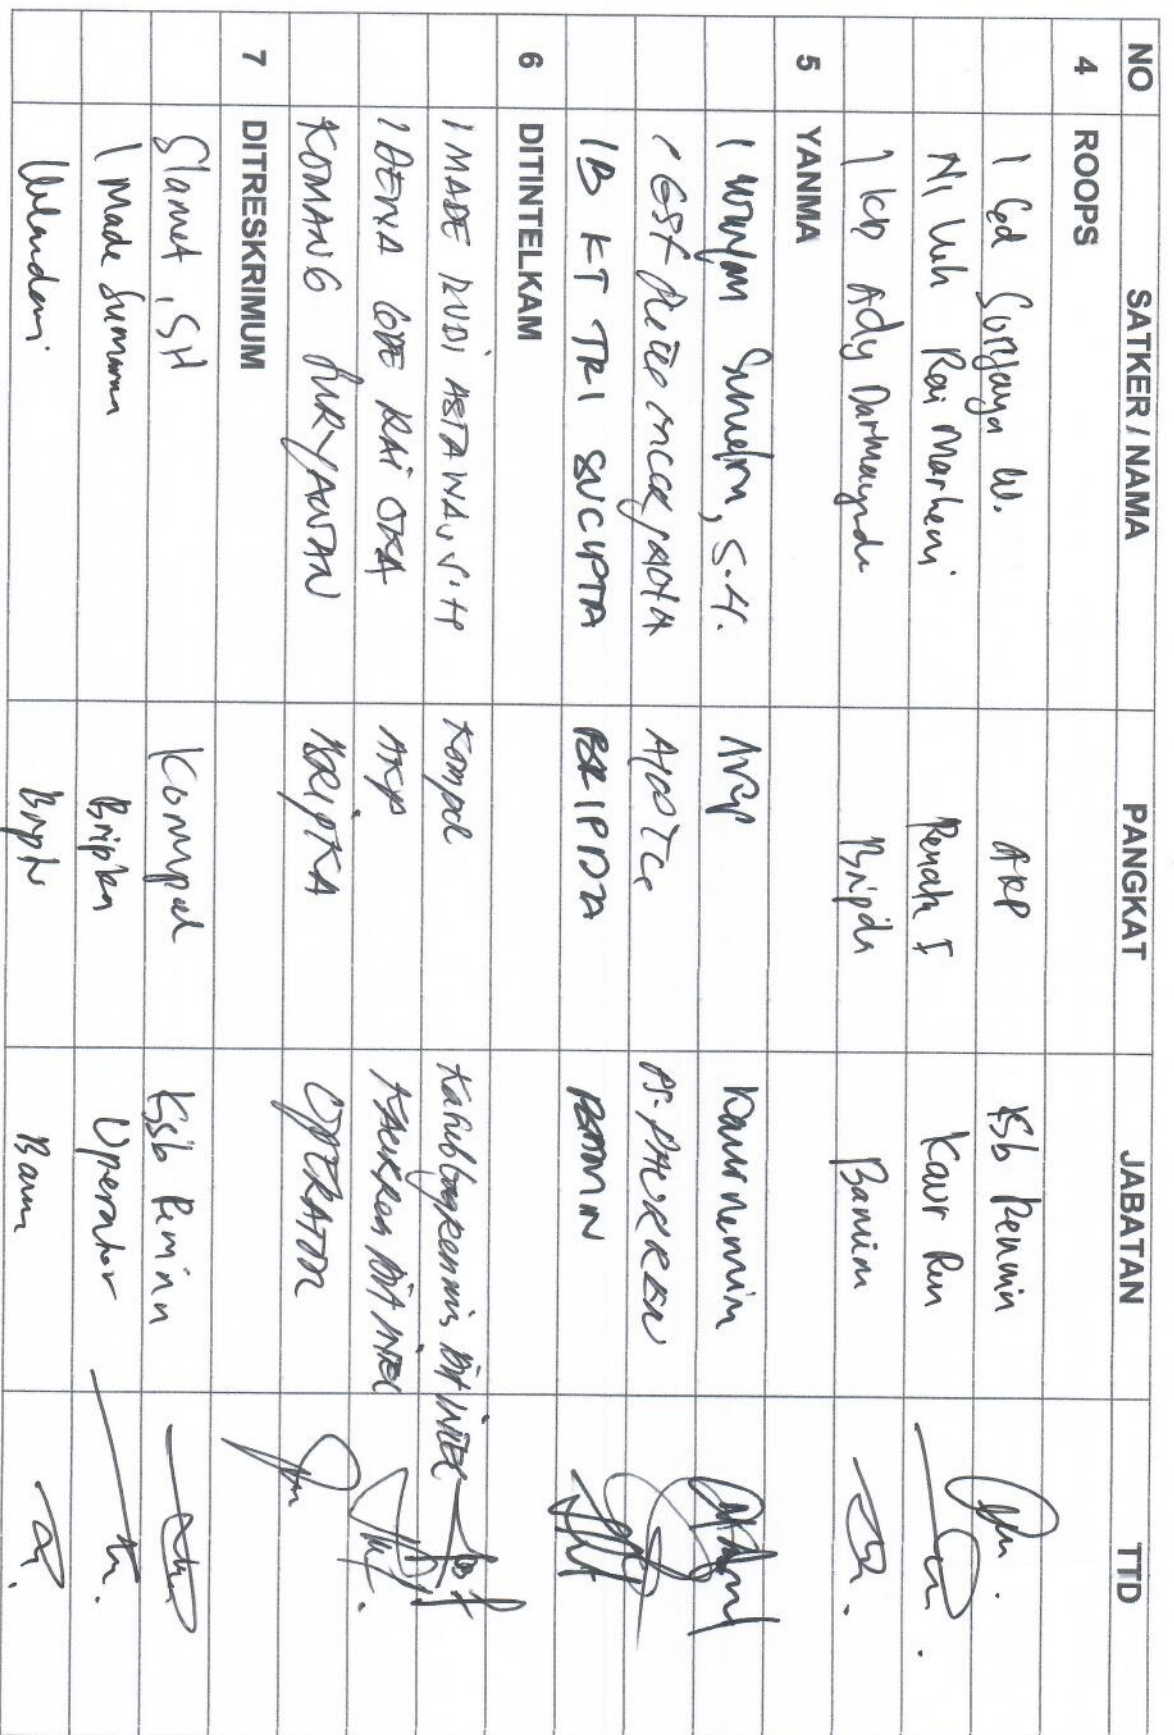 NO SATKER / NAMA PANGKAT JABATAN TTD
4 ROOPS
I Gd Surjaya W. AKP Ksb Renmin
Ni Luh Rai Marheni Penata I Kaur Ren
I Kdk Ady Darmayuda Bripda Bamin
5 YANMA
I Wayan, S.H. AKP Kaurrenmin
I GST Putu AIPTU PS. PAURREN
IB KT TRI SUCIPTA BRIPDA BAMIN
6 DITINTELKAM
I MADE RUDI ASTAWA, S.H Kompol Kasubbagrenmin DIT INTEL
I DEWA GDE RAI OKA AKP KAURREN DIT INTEL
KOMANG BRIPKA OPERATOR
7 DITRESKRIMUM
Slamet, SH Kompol Ksb Renmin
I Made Sumarna Bripka Operator
Wulandari Briptu Bamin